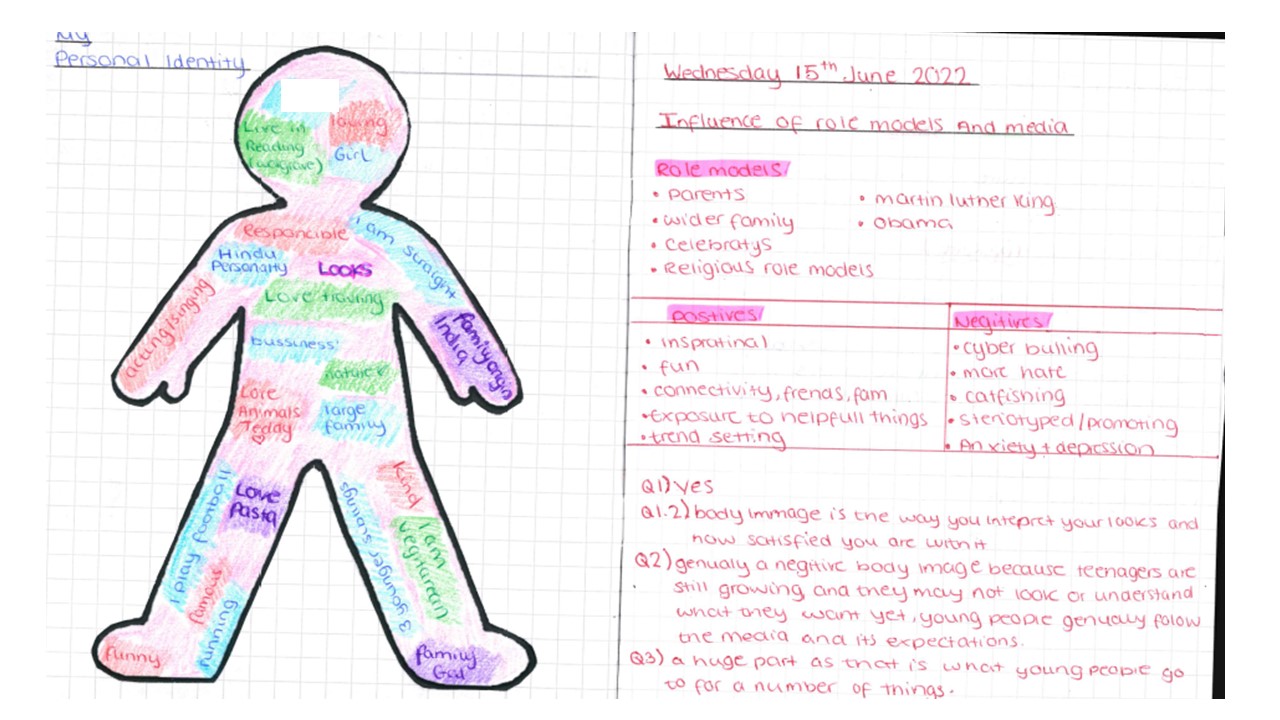 My
Personal Identity
Live in
Reading
loving
Girl
Responcible
I am straight
Hindu
Personality
LOOKS
Love travling
acting/singing
Family orgin
India
bussiness
nature
Love
Animals
Teddy
large
family
I play football
Love
Pasta
famous
running
funny
3 younger siblings
kind
I am
vegitarean
family
Gal
Wednesday 15th June 2022
Influence of role models And media
Role models
• Parents
• wider family
• celebratys
• Religious role models
• martin luther King
• Obama
Postives
• inspratinal
• fun
• connectivity, frends, fam
• Exposure to helpfull things
• trend setting
Negitives
• cyber bulling
• more hate
• catfishing
• steriotyped/promoting
• Anxiety + deprssion
Q1) yes
Q1.2) body immage is the way you intepret your looks and
how satisfied you are with it
Q2) genualy a negitive body image because teenagers are
still growing and they may not look or understand
what they want yet, young people genualy folow
the media and its expectations.
Q3) a huge part as that is what young people go
to for a number of things.